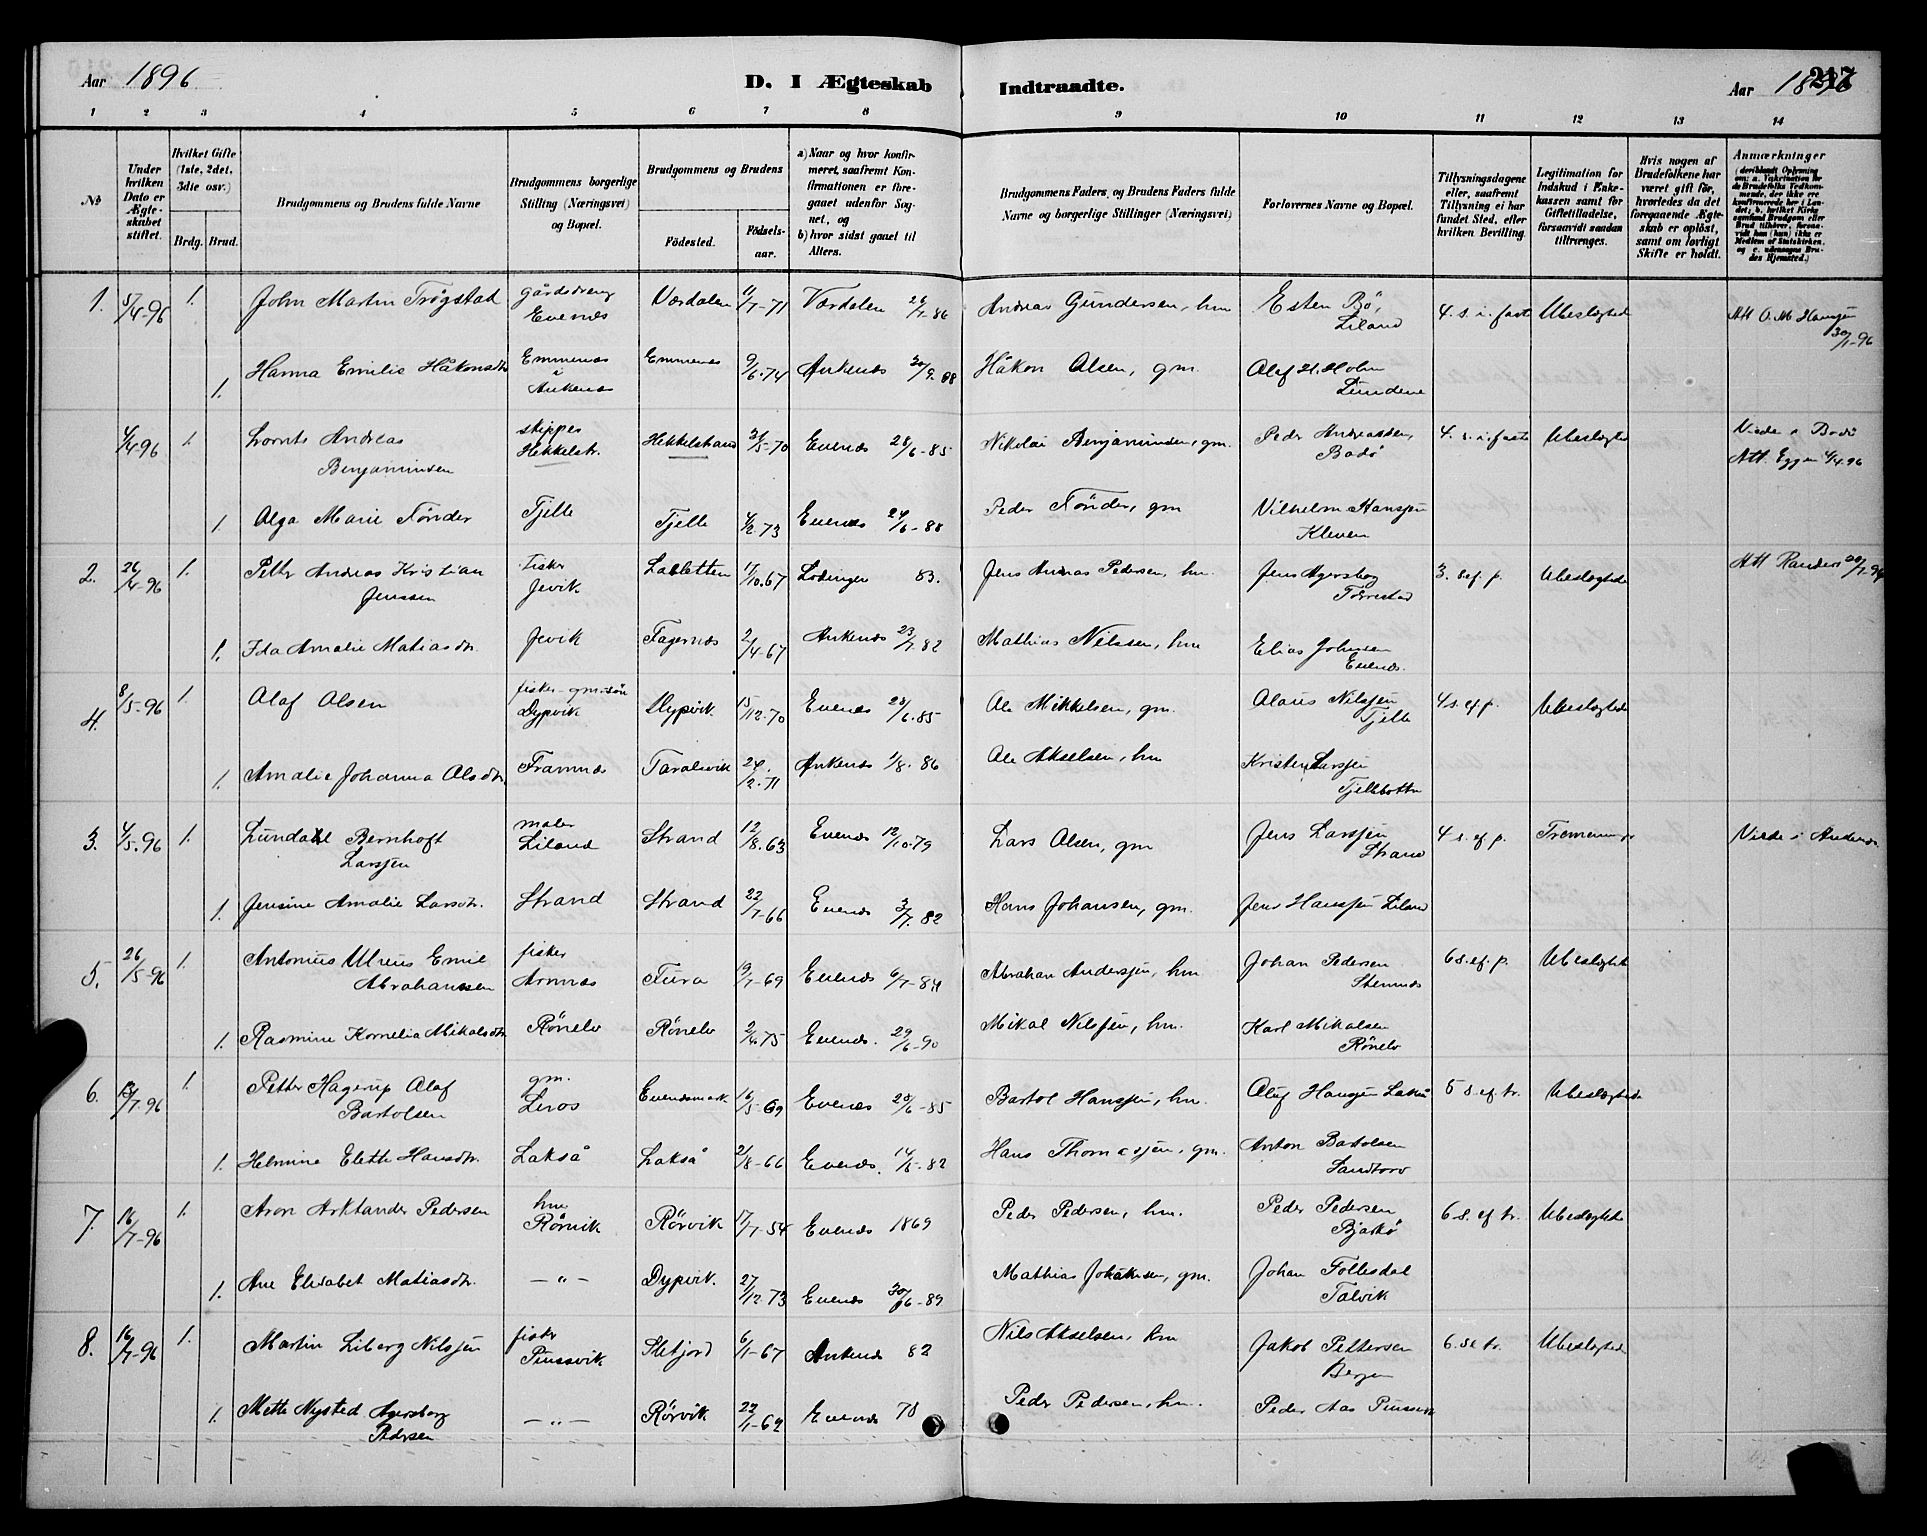 Aar 1896
D. I Ægteskab Indtraadte.
Aar 1896 217
1 2 3 4 5 6 7 8 9 10 11 12 13 14
№
Under hvilken Dato er Ægteskabet stiftet.
Hvilket Gifte (1ste, 2det, 3die osv.)
Brdg. Brud.
Brudgommens og Brudens fulde Navne
Brudgommens borgerlige Stilling (Næringsvei) og Bopæl.
Brudgommens og Brudens
Fødested.
Fødselsaar.
a) Naar og hvor konfirmeret, saafremt Konfirmationen er foregaaet udenfor Sognet, og
b) hvor sidst gaaet til Alters.
Brudgommens Faders, og Brudens Faders fulde Navne og borgerlige Stillinger (Næringsvei)
Forlovernes Navne og Bopæl.
Tillysningsdagene eller, saafremt Tillysning ei har fundet Sted, efter hvilken Bevilling.
Legitimation for Indskud i Enkekassen samt for Giftetilladelse, forsaavidt saadan tiltrænges.
Hvis nogen af Brudefolkene har været gift før, hvorledes da det foregaaende Ægteskab er opløst, samt om lovligt Skifte er holdt.
Anmærkninger
1. 5/4-96 1. John Martin Trøgstad gårdsdreng Evenes Værdalen 11/7-71 Værdalen 26/7-86 Andreas Gundersen, hm Esten Bö, Liland 4. s. i. faste Ubeslægtede Att O. M. Hansen 30/1-96
1. Hanna Emilie Håkonsdtr Emmenes i Ankenes Emmenes 9/6.74 Ankenes 30/9.88 Håkon Olsen, gm. Olaf H. Holm Lundene
4/4-96 1. Lornts Andreas Benjaminsen skipper Hekkelstr. Hekkelstrand 31/5-70 Evenes 28/6-85 Nikolai Benjaminsen, gm. Peder Andreassen, Bodø 4. s. i. faste Ubeslægtede Viede i Bodö Att. Eggen 4/4.96
1. Olga Marie Tönder Tjelle Tjelle 4/2.73 Evenes 24/6-88 Peder Tönder, gm Vilhelm Hansen Kleven
2. 26/4-96 1. Petter Andreas Kristian Jenssen Fisker Jevik 17/10.67 Lødingen 83. Jens Andreas Pedersen, hm. Jens Agersborg Tårrestad 3. s. ef. p. Ubeslægtede
1. Ida Amalie Matiasdtr. Jevik Fagernes 2/4-67 Ankenes 23/7.82 Mathias Nilssen, hm Elias Johnsen Evenes.
4. 8/5-96 1. Olaf Olsen fisker gm.sön Dypvik Dypvik 15/12.70 Evenes 28/6.85 Ole Mikkelsen, gm. Olaus Nilssen Tjelle 4 s. ef. p. Ubeslægtede
1. Amalie Johanna Olsdtr. Framnes Taralsvik 24/2.71 Ankenes 1/8.86 Ole Akselsen, hm Kristen Larssen Tjellebotten
3. 4/5.96 1. Lundahl Bernhoft Larssen maler Liland Strand 12/8.63 Evenes 12/10.79 Lars Olsen, gm Jens Larssen Strand 4 s. ef. p. Viede i Ankenes
1. Jensine Amalie Larsdtr. Strand Strand 22/7-66 Evenes 3/7.82 Hans Johansen, gm. Jens Hanssen Liland
5. 26/5-96 1. Antonius Ulreus Emil Abrahamsen fisker Arnnes Tura 19/7-69 Evenes 6/7-84 Abraham Anderssen, hm Johan Pedersen Stennes 6 s. ef. p. Ubeslægtede
1. Rasmine Kornelia Mikalsdtr. Rönelv Rönelv 2/4.75 Evenes. 29/6-90 Mikal Nilssen, hm. Karl Mikalsen Rönelv
6. 1. Petter Hagerup Olaf Bartolsen gm. Leros Evenesmark. 16/5-69 Evenes 28/6-85 Bartol Hanssen, hm. Oluf Hanssen Lakså 5 s. ef. tr. Ubeslægtede
1. Helmine Elette Hansdtr. Lakså Lakså 2/8-66 Evenes. Hans Thomassen, gm. Anton Bartolsen Sandtorv
7. 16/7-96 1. Aron Arktander Pedersen hm. Rörvik Rörvik 17/7-54 Evenes 1869 Peder Pedersen, hm. Peder Pedersen Bjarkö 6 s. ef. tr. Ubeslægtede
1. Ane Elisabet Matiasdtr. —"— Dypvik. 27/12.73 Evenes 30/6-89 Mathias Johansen, gm. Johan Follesdal Tolvik
8. 16/7-96 1. Martin Liberg Nilssen fisker Punsvik Slefjord 6/1-67 Ankenes 82 Nils Akselsen, hm Jakob Pettersen Bergen 6. s. e. tr. Ubeslægtede
1. Mette Nysted Agersborg Pedersen —"— Rörvik 22/1-62 Evenes 78 Peder Pedersen, hm. Peder Aas Punsvik